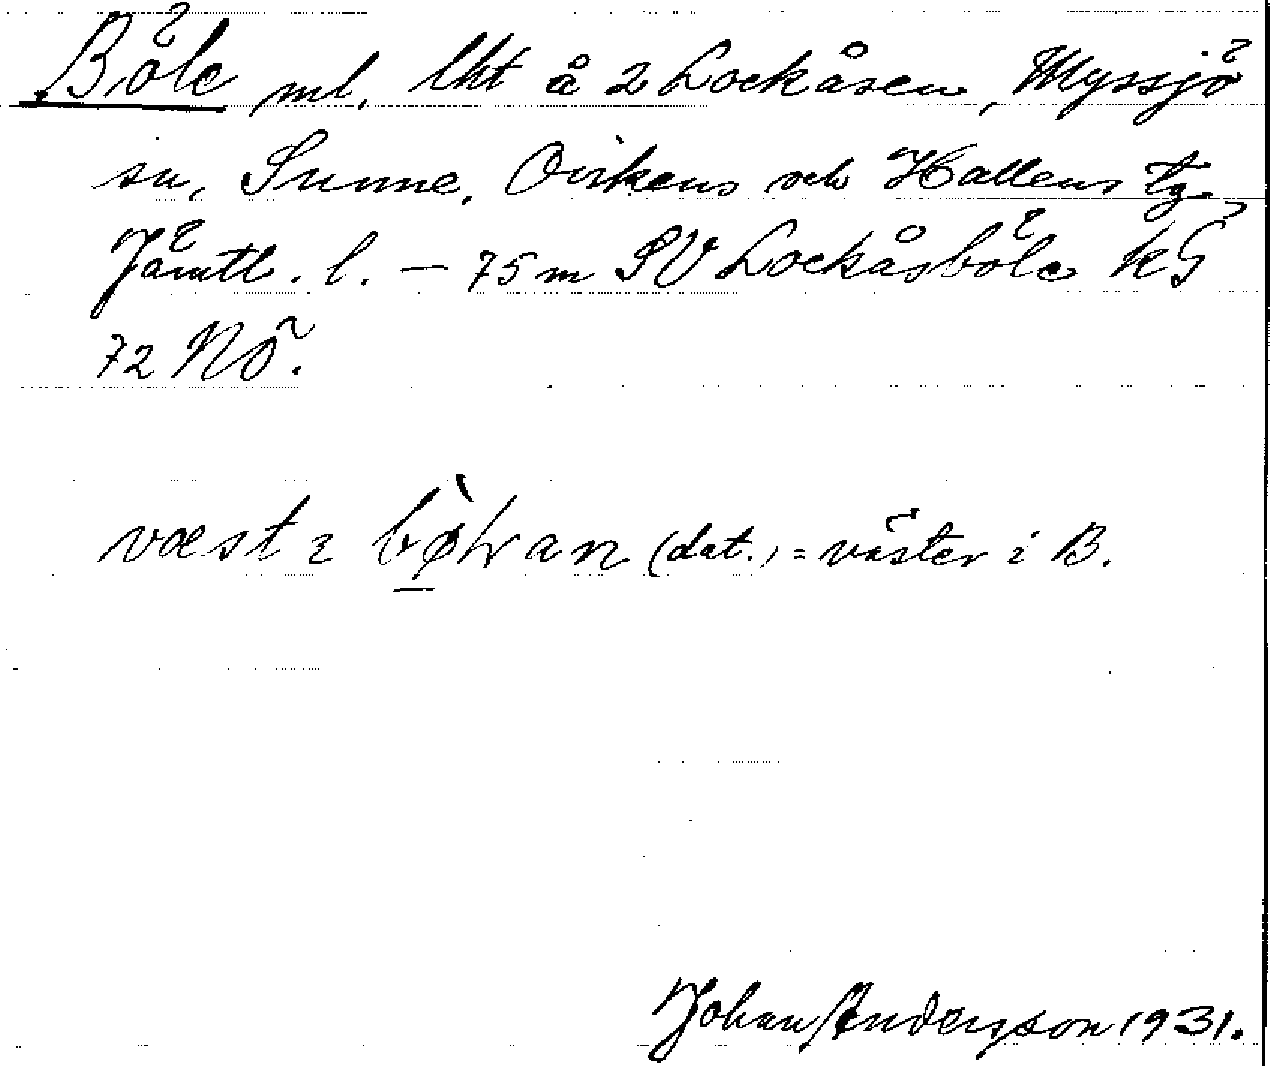 Böle ml. lht å 2 Lockåsen, Myssjö
sn, Sunne, Ovikens och Hallens tg,
Jämtl. l. — 75 m SV Lockåsböle kG
72 NÖ.
væst i (dat.) = väster i B.
Johan Andersson 1931.